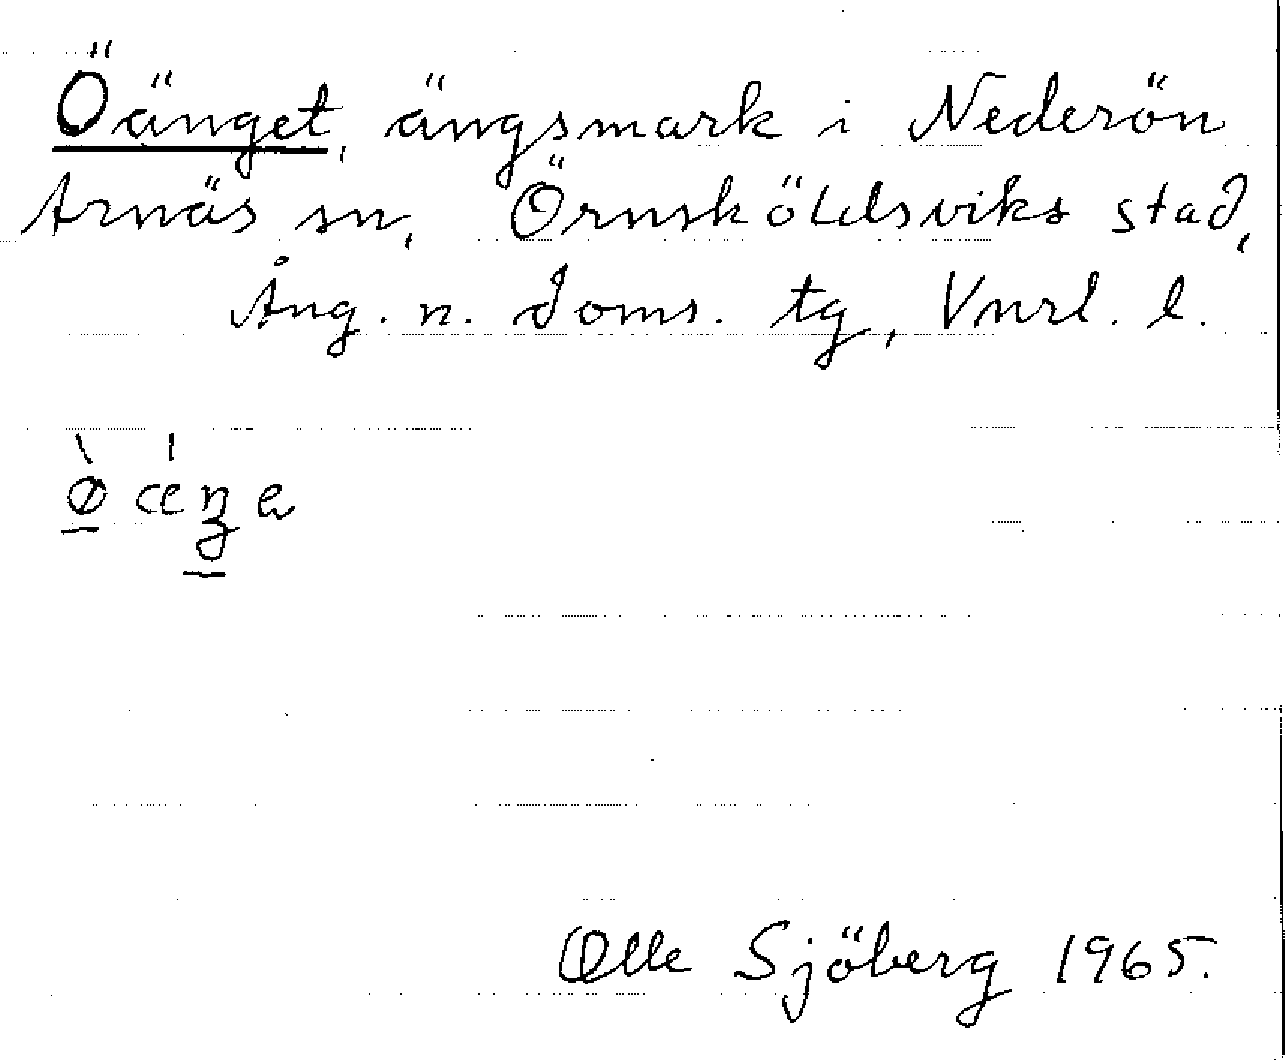 Öänget, ängsmark i Nederön
Arnäs sn, Örnsköldsviks stad,
Ång. n. Doms. tg, Vnrl. l.
Olle Sjöberg 1965.